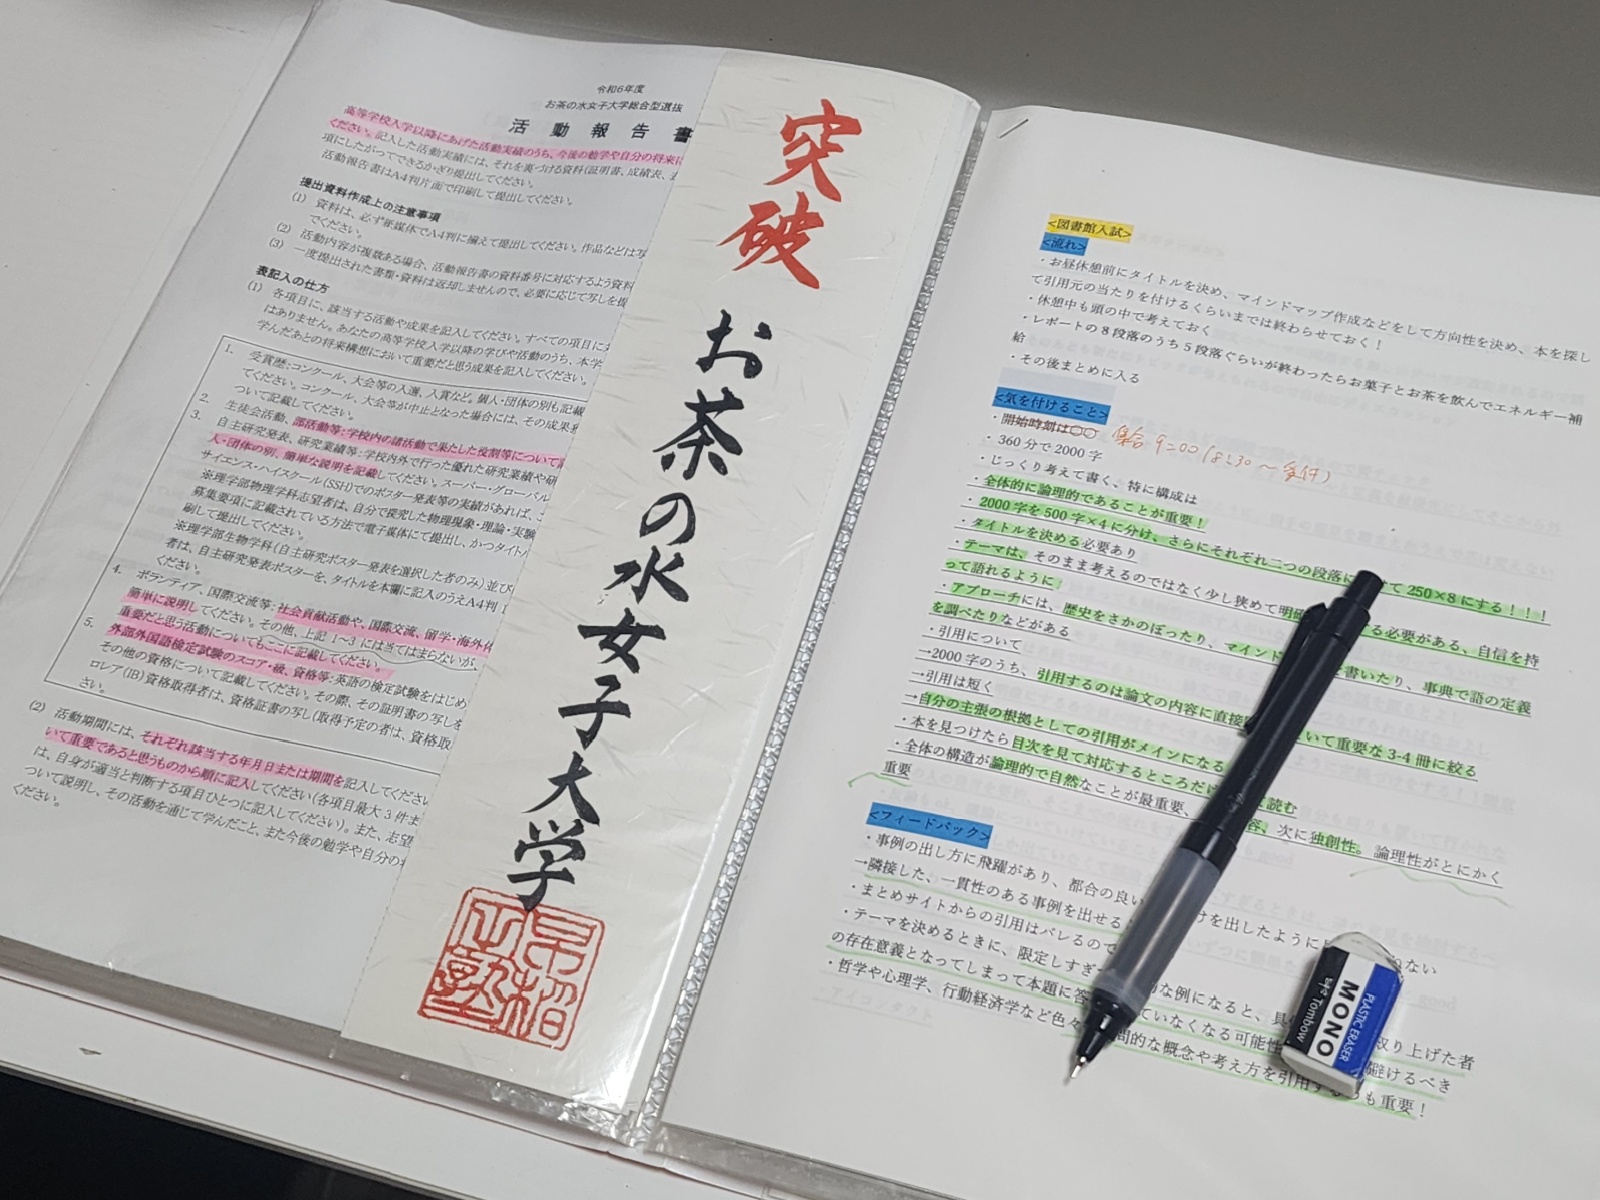 令和6年度
お茶の水女子大学総合型選抜
活動報告書
高等学校入学以降にあげた活動実績のうち、今後の勉学や自分の将来に
ください。記入した活動実績には、それを裏づける資料(証明書、成績表、
項にしたがってできるかぎり提出してください。
活動報告書はA4判片面で印刷して提出してください。
提出資料作成上の注意事項
(1) 資料は、必ず紙媒体でA4判に揃えて提出してください。作品などは写
でください。
(2) 活動内容が複数ある場合、活動報告書の資料番号に対応するよう資料
(3) 一度提出された書類・資料は返却しませんので、必要に応じて写しを提
表記入の仕方
(1) 各項目に、該当する活動や成果を記入してください。すべての項目に
はありません。あなたの高等学校入学以降の学びや活動のうち、本学
学んだあとの将来構想において重要だと思う成果を記入してください。
1. 受賞歴:コンクール、大会等の入選、入賞など。個人・団体の別も記載
てください。コンクール、大会等が中止となった場合には、その成果
ついて記載してください。
2. 生徒会活動、部活動等:学校内の諸活動で果たした役割等について
3. 自主研究発表、研究業績等:学校内外で行った優れた研究業績や研
人・団体の別、簡単な説明を記載してください。スーパー・グローバル
サイエンス・ハイスクール(SSH)でのポスター発表等の実績があれば、
※理学部物理学科志望者は、自分で探究した物理現象・理論・実験
募集要項に記載されている方法で電子媒体にて提出し、かつタイトル
刷して提出してください。
※理学部生物学科(自主研究ポスター発表を選択した者のみ)並び
者は、自主研究発表ポスターを、タイトルを本欄に記入のうえA4判
ください。
4. ボランティア、国際交流等:社会貢献活動や、国際交流、留学・海外
簡単に説明してください。その他、上記1~3には当てはまらないが、
重要だと思う活動についてもここに記載してください。
5. 外部外国語検定試験のスコア・級、資格等:英語の検定試験をはじめ
その他の資格について記載してください。その際、その証明書の写しを
ロレア(IB)資格取得者は、資格証書の写し(取得予定の者は、資格取
さい。
(2) 活動期間には、それぞれ該当する年月日または期間を記入してくださ
いて重要であると思うものから順に記入してください(各項目最大3件ま
は、自身が適当と判断する項目ひとつに記入してください)。また、志望
ついて説明し、その活動を通じて学んだこと、また今後の勉学や自分の
ください。
突破
お茶の水女子大学
早稲田塾
<図書館入試>
<流れ>
・お昼休憩前にタイトルを決め、マインドマップ作成などをして方向性を決め、本を探し
て引用元の当たりを付けるくらいまでは終わらせておく!
・休憩中も頭の中で考えておく
・レポートの8段落のうち5段落ぐらいが終わったらお菓子とお茶を飲んでエネルギー補
給
・その後まとめに入る
<気を付けること>
・開始時刻は○○ 集合 9:00 (8:30~受付)
・360分で2000字
・じっくり考えて書く、特に構成は
・全体的に論理的であることが重要!
・2000字を500字×4に分け、さらにそれぞれ二つの段落に て250×8にする!!!
・タイトルを決める必要あり
・テーマは、そのまま考えるのではなく少し狭めて明確 る必要がある、自信を持
って語れるように!
・アプローチには、歴史をさかのぼったり、マインド を書いたり、事典で語の定義
を調べたりなどがある
・引用について
→2000字のうち、引用するのは論文の内容に直接 いて重要な3-4冊に絞る
→引用は短く
→自分の主張の根拠としての引用がメインになる
・本を見つけたら目次を見て対応するところだけ 読む
・全体の構造が論理的で自然なことが最重要、 容、次に独創性。論理性がとにかく
重要
<フィードバック>
・事例の出し方に飛躍があり、都合の良い けを出したように ない
→隣接した、一貫性のある事例を出せる
・まとめサイトからの引用はバレるので
・テーマを決めるときに、限定しすぎ 的な例になると、具 取り上げた者
の存在意義となってしまって本題に答 ていなくなる可能性 避けるべき
・哲学や心理学、行動経済学など色々 問的な概念や考え方を引用す も重要!
PLASTIC ERASER
MONO
Tombow